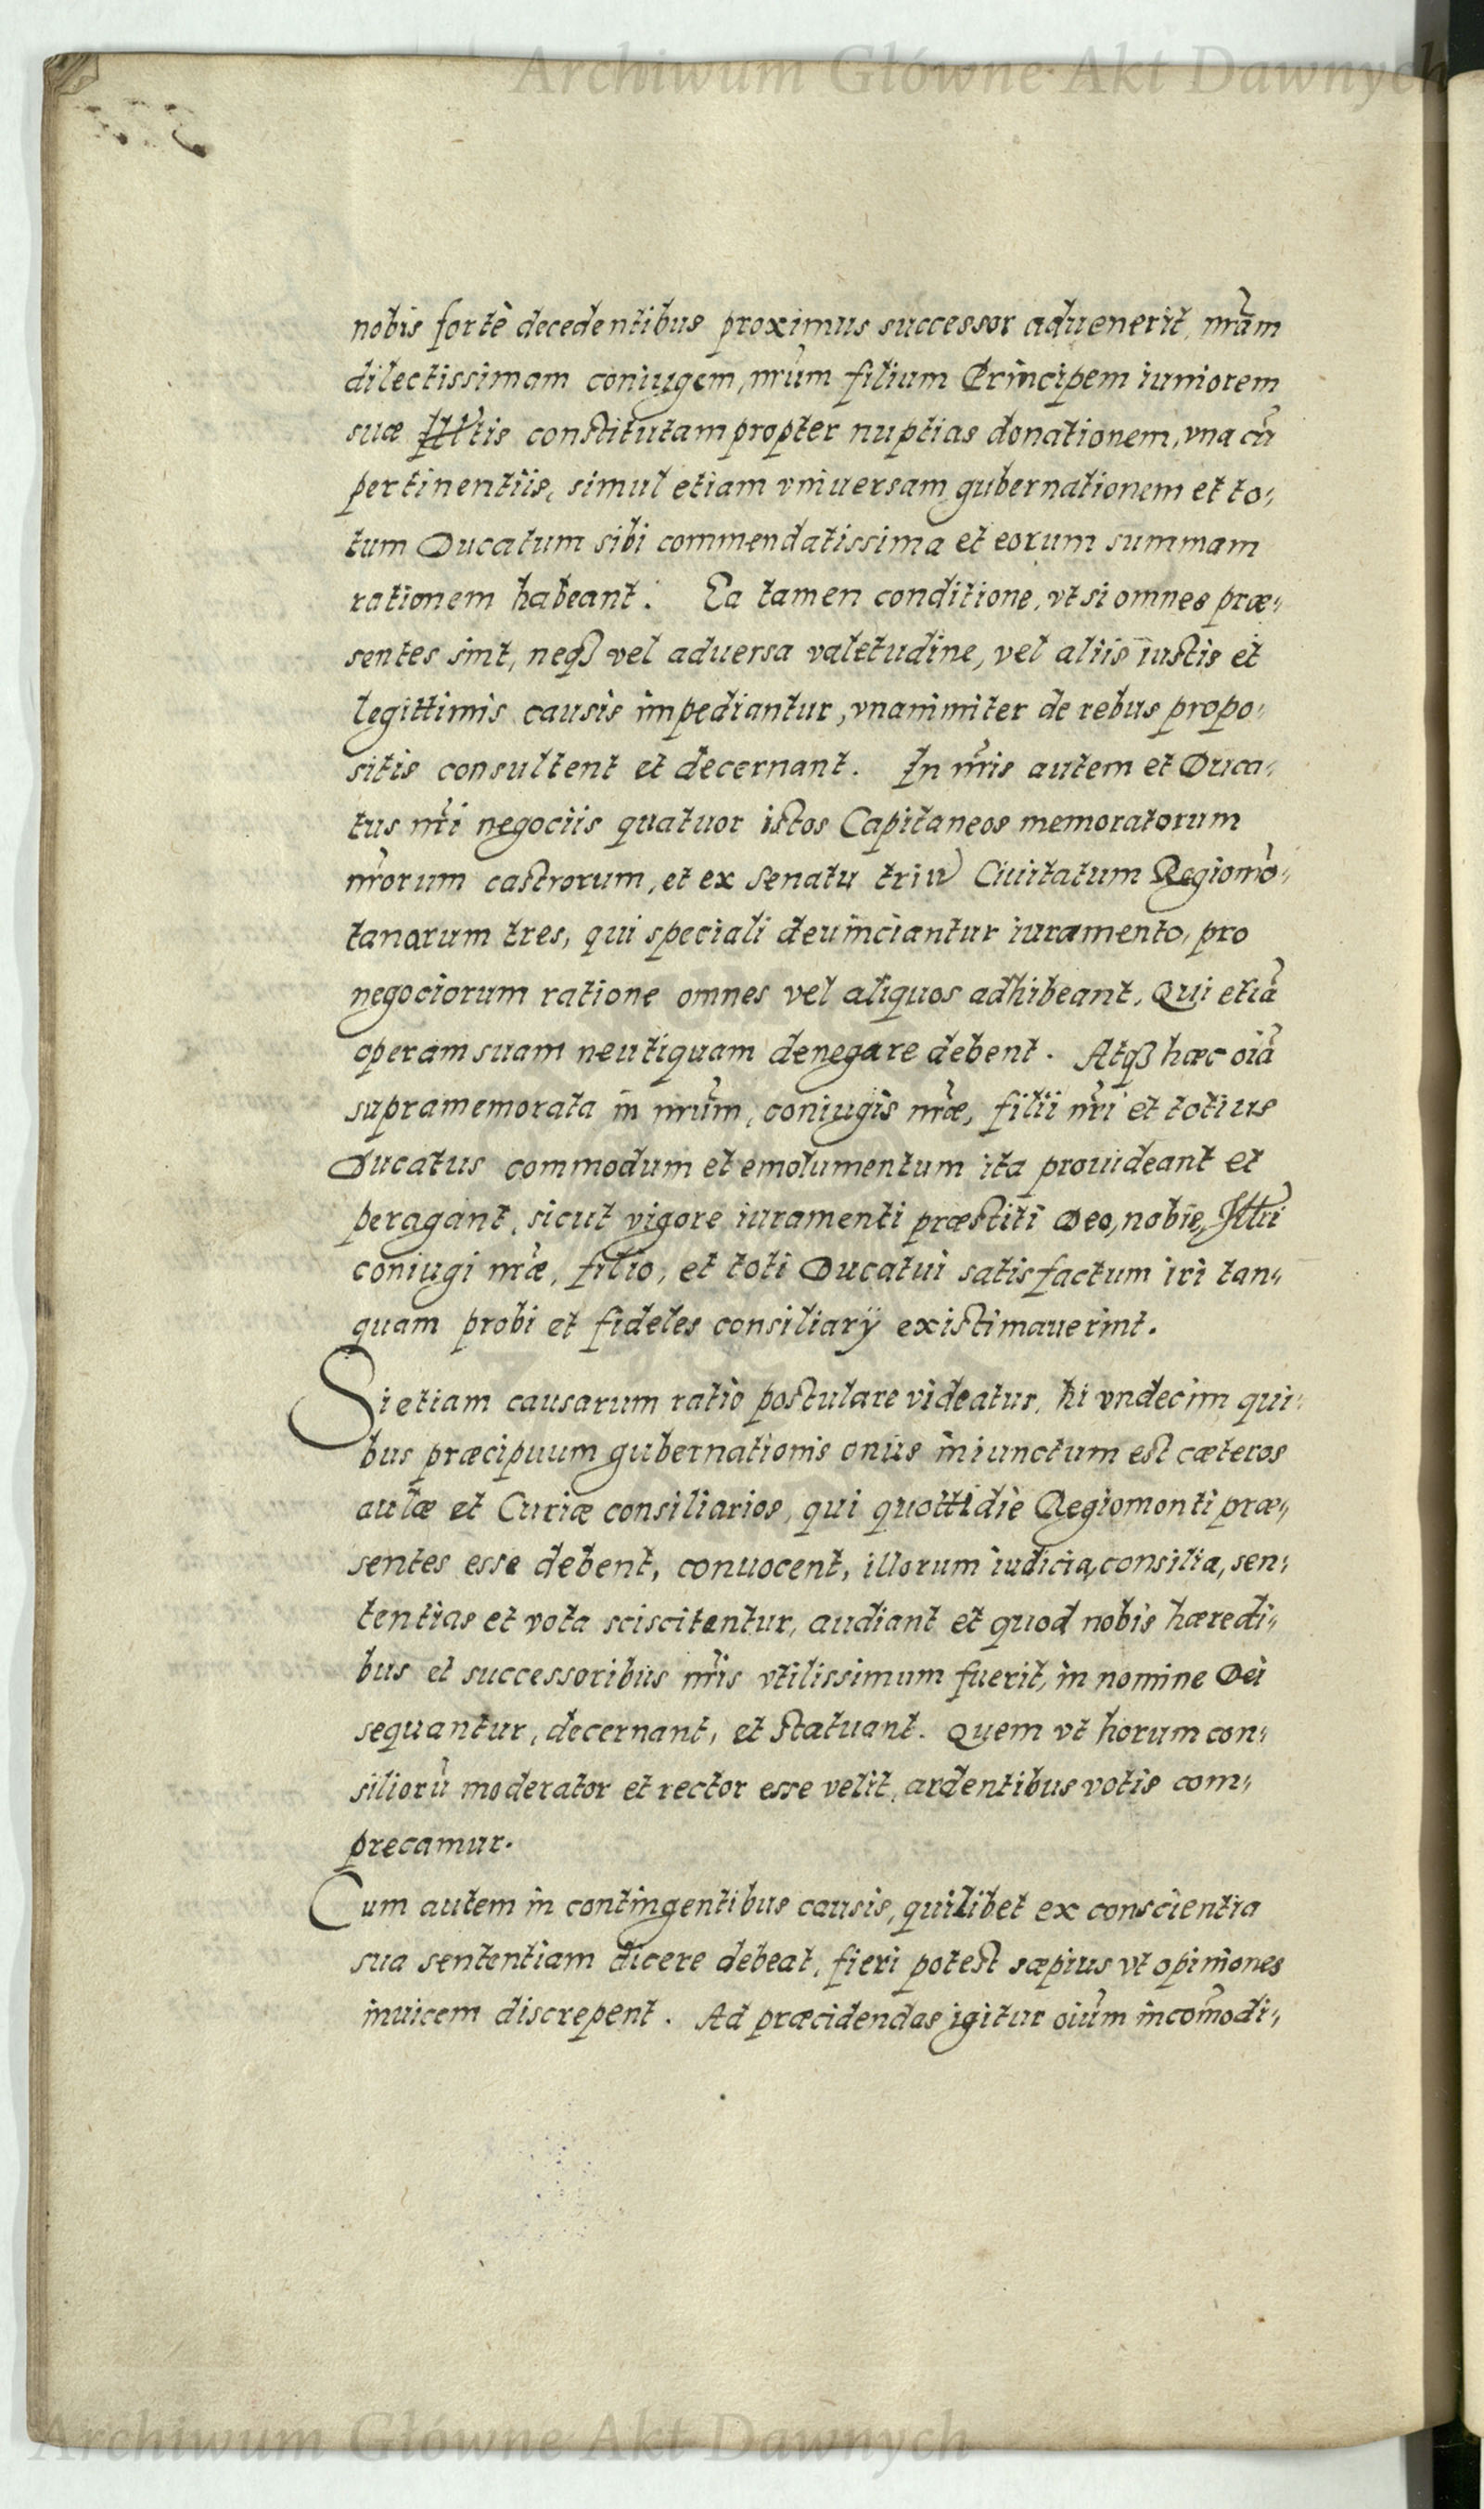 Archiwum Główne Akt Dawnych
nobis fortè decedentibus proximus successor aduenerit, nr̃am
dilectissimam coniugem, nr̃um filium Principem iuniorem
suæ Ill̃tis constitutam propter nuptias donationem, vna cũ
pertinentiis, simul etiam vniuersam gubernationem et to,,
tum Ducatum sibi commendatissima et eorum summam
rationem habeant. Ea tamen conditione, vt si omnes præ,,
sentes sint, neqꝫ vel aduersa valetudine, vel aliis iustis et
legittimis causis impediantur, vnanimiter de rebus propo,,
sitis consultent et decernant. In nr̃is autem et Duca,,
tus nr̃i negociis quatuor istos Capitaneos memoratorum
nr̃orum castrorum, et ex Senatu triũ Ciuitatum Regiomõ,,
tanorum tres, qui speciali deuinciantur iuramento, pro
negociorum ratione omnes vel aliquos adhibeant, Qui etiã
operam suam neutiquam denegare debent. Atqꝫ hæc oĩa
supramemorata in nr̃um, coniugis nr̃æ, filii nr̃i et totius
Ducatus commodum et emolumentum ita prouideant et
peragant, sicut vigore iuramenti præstiti Deo, nobis, Ill̃ri
coniugi nr̃æ, filio, et toti Ducatui satisfactum iri tan,,
quam probi et fideles consiliarÿ existimauerint.
Si etiam causarum ratio postulare videatur, hi vndecim qui,,
bus præcipuum gubernationis onus iniunctum est cæteros
aulæ et Curiæ consiliarios, qui quottidie Regiomonti præ,,
sentes esse debent, conuocent, illorum iudicia, consilia, sen,,
tentias et vota sciscitentur, audiant et quod nobis hæredi,,
bus et successoribus nr̃is vtilissimum fuerit, in nomine Dei
sequantur, decernant, et statuant. Quem vt horum con,,
siliorũ moderator et rector esse velit, ardentibus votis com,,
precamur.
Cum autem in contingentibus causis, quilibet ex conscientia
sua sententiam dicere debeat, fieri potest sæpius vt opiniones
inuicem discrepent. Ad præcidendas igitur oĩum incom̃odi,,
Archiwum Główne Akt Dawnych